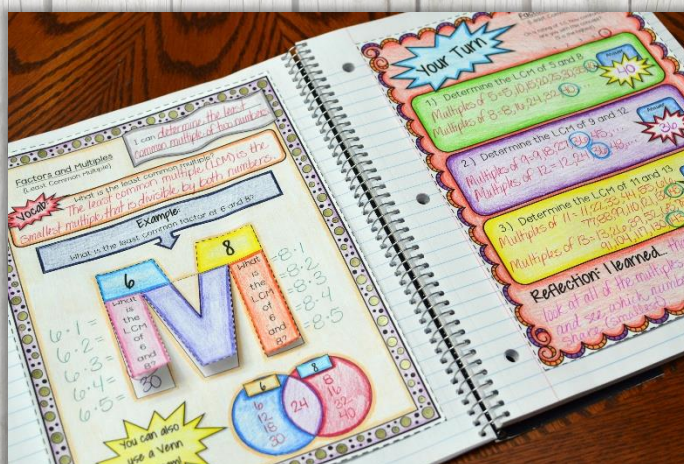 I can determine the least
common multiple of two numbers.
Factors and Multiples
(Least Common Multiple)
Vocab:
What is the least common multiple?
The least common multiple (LCM) is the
smallest multiple that is divisible by both numbers.
Example:
What is the least common factor of 6 and 8?
6
8
What
is
the
LCM
of
6
and
8?
30
What
is
the
LCM
of
6
and
8?
6·1=
6·2=
6·3=
6·4=
6·5=
=8·1
=8·2
=8·3
=8·4
=8·5
6
8
6
12
18
30
24
8
16
32
40
You can also
use a Venn
Your Turn
1.) Determine the LCM of 5 and 8
Multiples of 5=5,10,15,20,25,30,35,
Multiples of 8=8,16,24,32,
Answer
40
2.) Determine the LCM of 9 and 12
Multiples of 9=9,18,27,36,45,...
Multiples of 12=12,24,36,48,...
Answer
36
3.) Determine the LCM of 11 and 13
Multiples of 11=11,22,33,44,55,
Multiples of 13=13,26,39,52,
Reflection: I learned...
look at all of the multiples
and see which number